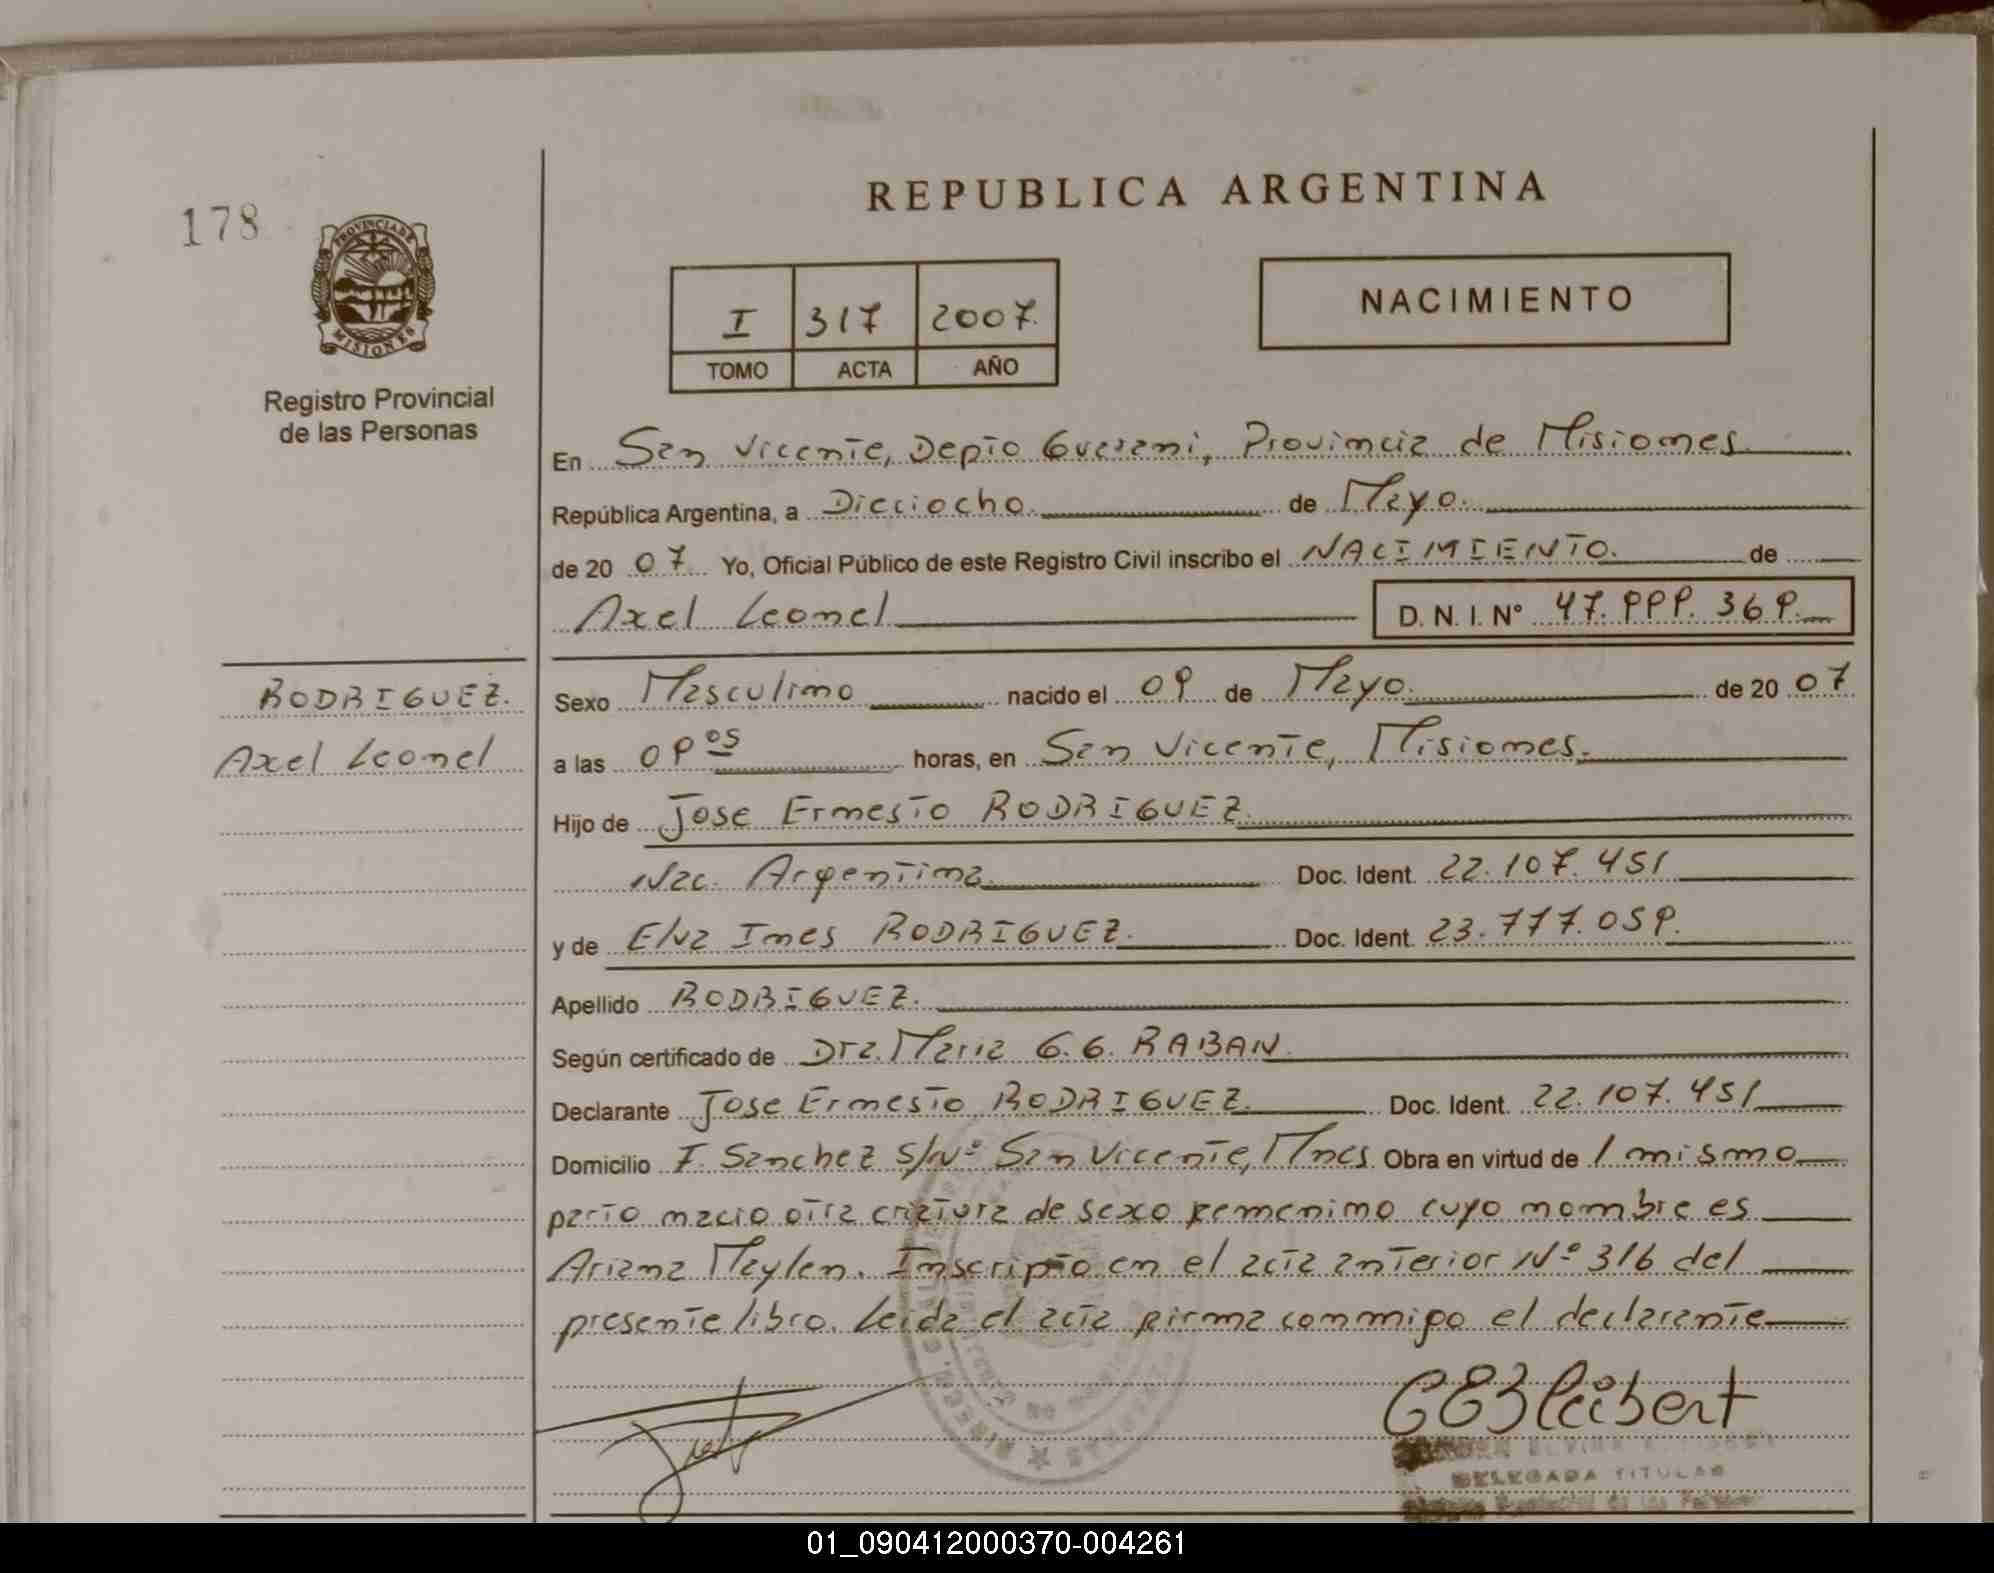 178
PROVINCIA DE
MISIONES
Registro Provincial
de las Personas
REPUBLICA ARGENTINA
I 317 2007.
TOMO ACTA AÑO
NACIMIENTO
En San Vicente, Depto Guarani, Provincia de Misiones
República Argentina, a Dieciocho. de Mayo.
de 20 07 Yo, Oficial Público de este Registro Civil inscribo el NACIMIENTO. de
Axel Leonel D. N. I. N° 47.999.369.
RODRIGUEZ.
Axel Leonel
Sexo Masculino nacido el 09 de Mayo. de 20 07
a las 09 05 horas, en San Vicente, Misiones.
Hijo de Jose Ernesto RODRIGUEZ.
Nac. Argentina. Doc. Ident. 22.107.451
y de Elva Ines RODRIGUEZ. Doc. Ident. 23.777.059.
Apellido RODRIGUEZ.
Según certificado de Dra. Maria G.G. RABAN.
Declarante Jose Ernesto RODRIGUEZ. Doc. Ident. 22.107.451
Domicilio F. Sanchez S/Nº San Vicente, Mnes. Obra en virtud de l mismo
parto nacio otra criatura de sexo femenino cuyo nombre es
Ariana Maylen. Inscripto en el acta anterior Nº 316 del
presente libro. Leida el acta firma conmigo el declarante
DELEGADA TITULAR
01_090412000370-004261